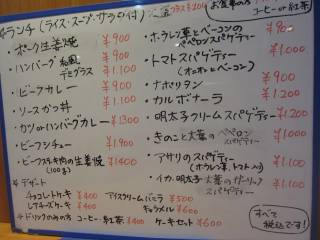 ランチ（ライス・スープ・サラダ付）
・ポーク生姜焼 ¥900
・ハンバーグ 和風 デミグラス ¥900 ¥1.100
・ビーフカレー ¥900
・ソースカツ丼 ¥1.100
・カツorハンバーグカレー ¥1300
・ビーフシチュー ¥1.900
・ビーフステーキ肉の生姜焼 ¥1400
(100g)
* デザート
チョコレートケーキ ¥400
レアチーズケーキ ¥400
* ドリンクのみの方 コーヒー・紅茶 ¥400
コーヒー or 紅茶
・ホーレン草とベーコンの
ペペロンスパゲティー
・トマトスパゲティー ¥1.000
(オニオンとベーコン)
・ナポリタン ¥900
・カルボナーラ ¥1.200
・明太子クリームスパゲティー ¥1.200
・きのこと大葉のペペロン
スパゲティー ¥1.000
・アサリのスパゲティー
(ホーレン草、トマト入り) ¥1.100
・イカ、明太子、大葉のガーリック
スパゲティー ¥1.100
アイスクリーム バニラ ¥500
キャラメル ¥600
ケーキセット ¥600
すべて
税込です！